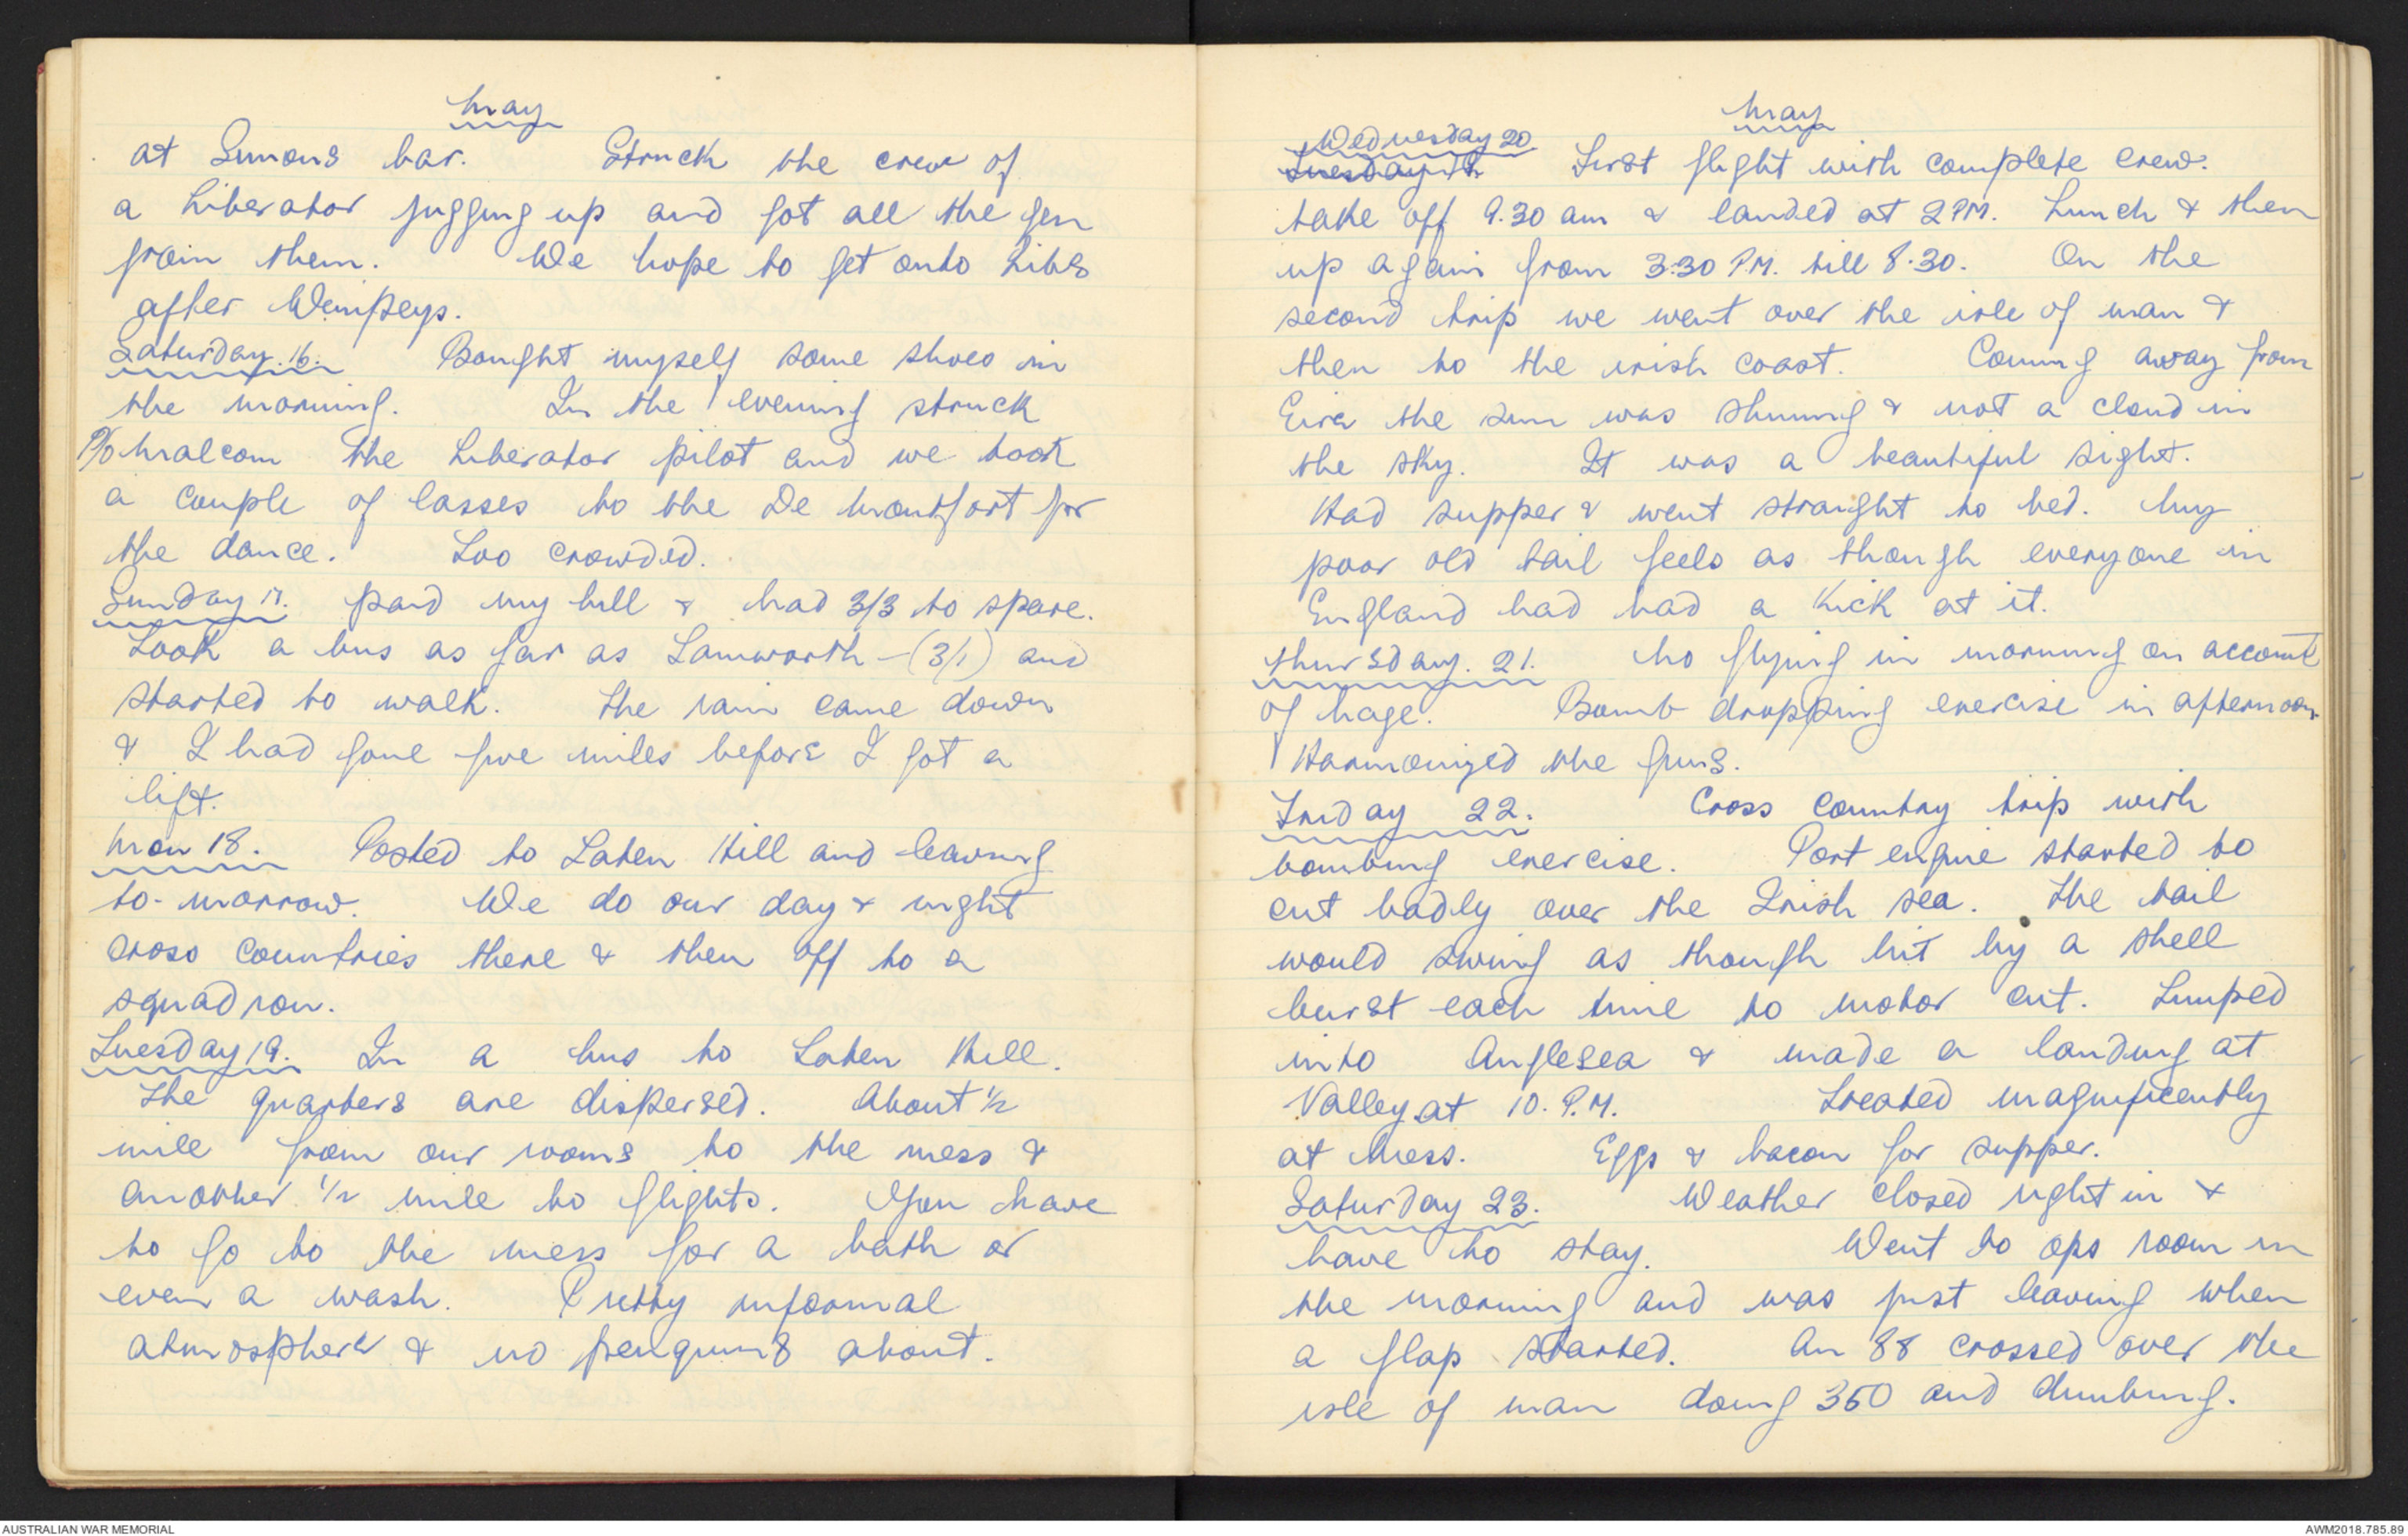 May
at Simons bar. Struck the crew of
a Liberator jugging up and got all the gen
from them. We hope to get onto Libs
after Wimpeys.
Saturday. 16. Bought myself some shoes in
the morning. In the evening struck
P/O Malcom the Liberator pilot and we took
a couple of lasses to the De Montfort for
the dance. Too crowded.
Sunday 17. paid my bill & had 3/3 to spare.
Took a bus as far as Tamworth - (3/1) and
started to walk. The rain came down
& I had gone five miles before I got a
lift.
Mon 18. Posted to Taten Hill and leaving
to-morrow. We do our day & night
cross countries there & then off to a
squadron.
Tuesday 19. In a bus to Taten Hill.
The quarters are dispersed. About 1/2
mile from our rooms to the mess &
another 1/2 mile to flights. You have
to go to the mess for a bath or
even a wash. Pretty informal
atmosphere & no penguins about.
May
Wednesday 20.
Tuesday 19. First flight with complete crew.
take off 9.30 am & landed at 2 PM. Lunch & then
up again from 3.30 P.M. till 8.30. On the
second trip we went over the isle of man &
then to the irish coast. Coming away from
Eire the sun was shining & not a cloud in
the sky. It was a beautiful sight.
Had supper & went straight to bed. My
poor old tail feels as though everyone in
England had had a kick at it.
Thursday. 21. No flying in morning on account
of haze. Bomb dropping exercise in afternoon.
Harmonized the guns.
Friday 22. Cross Country trip with
bombing exercise. Port engine started to
cut badly over the Irish sea. The tail
would swing as though hit by a shell
burst each time to motor cut. Limped
into Anglesea & made a landing at
Valley at 10. P.M. Treated magnificently
at Mess. Eggs & bacon for supper.
Saturday 23. Weather closed right in &
have to stay. Went to ops room in
the morning and was just leaving when
a flap started. An 88 crossed over the
isle of man doing 350 and climbing.
AUSTRALIAN WAR MEMORIAL
AWM2018.785.89